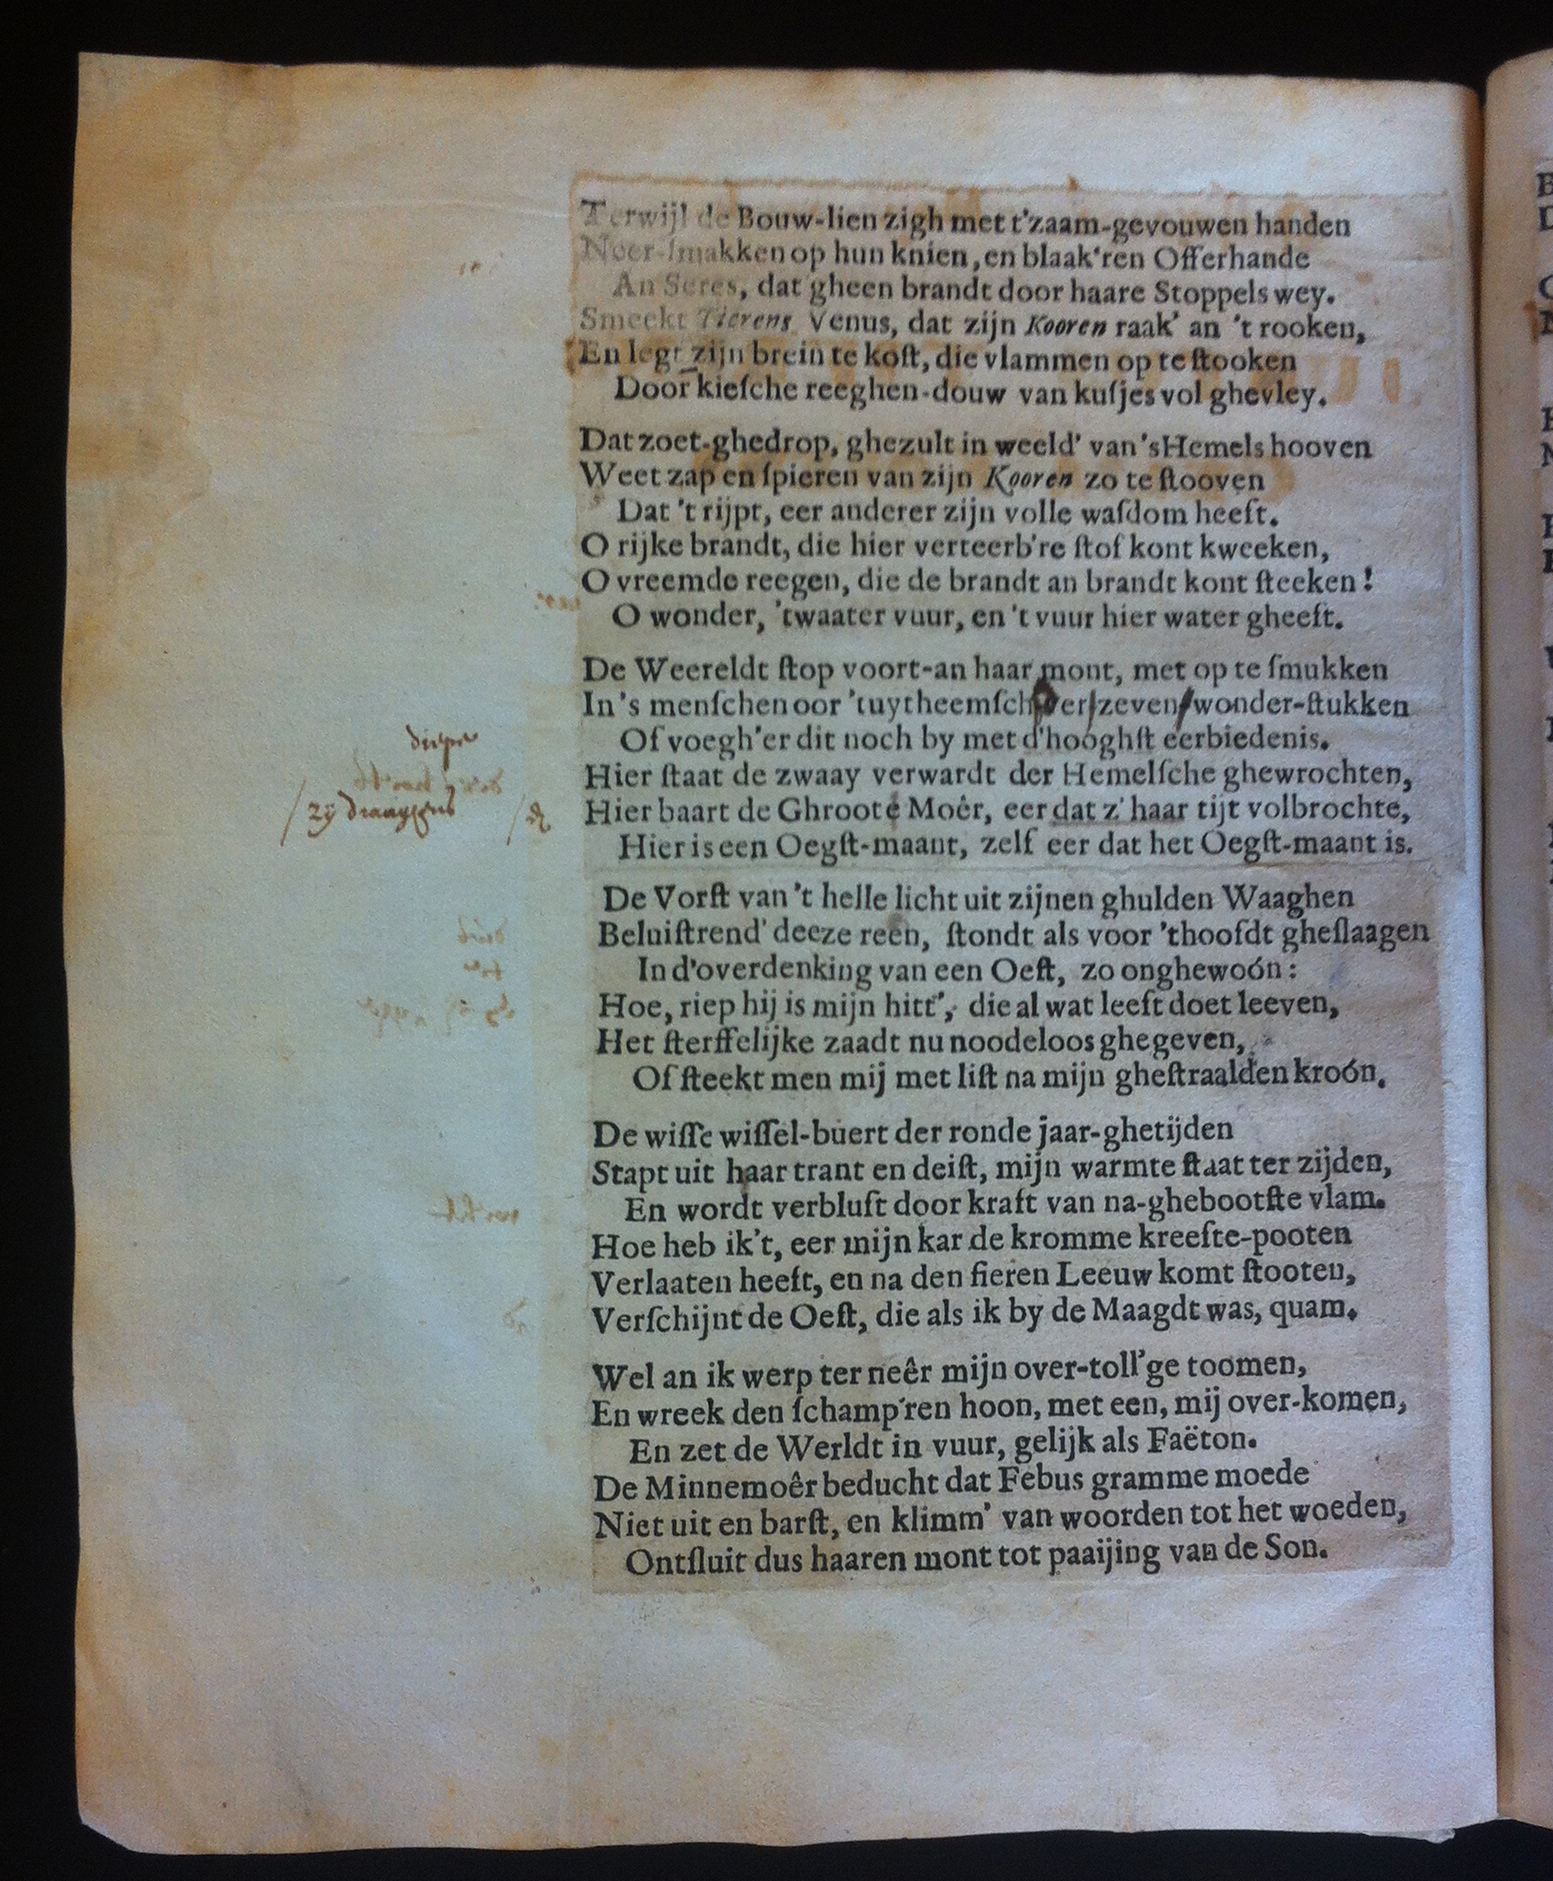 Terwijl de Bouw-lien zigh met t'zaam-gevouwen handen
Neer-ſmakken op hun knien, en blaak'ren Offerhande
An Seres, dat gheen brandt door haare Stoppels wey.
Smeekt Tierens Venus, dat zijn Kooren raak' an 't rooken,
En legt zijn brein te koſt, die vlammen op te ſtooken
Door kieſche reeghen-douw van kuſjes vol ghevley.
Dat zoet-ghedrop, ghezult in weeld' van 's Hemels hooven
Weet zap en ſpieren van zijn Kooren zo te ſtooven
Dat 't rijpt, eer anderer zijn volle waſdom heeft.
O rijke brandt, die hier verteerb're ſtof kont kweeken,
O vreemde reegen, die de brandt an brandt kont ſteeken!
O wonder, 'twaater vuur, en 't vuur hier water gheeft.
De Weereldt ſtop voort-an haar mont, met op te ſmukken
In 's menſchen oor 'tuytheemſch ver zeven wonder-ſtukken
Of voegh'er dit noch by met d'hooghſt eerbiedenis.
dieper
Hier ſtaat de zwaay verwardt der Hemelſche ghewrochten,
/ zy draagens / &
Hier baart de Ghroote Moêr, eer dat z' haar tijt volbrochte,
Hier is een Oegſt-maant, zelf eer dat het Oegſt-maant is.
De Vorſt van 't helle licht uit zijnen ghulden Waaghen
Beluiſtrend' deeze reên, ſtondt als voor 'thoofdt gheſlaagen
In d'overdenking van een Oeſt, zo onghewoón:
Hoe, riep hij is mijn hitt', die al wat leeft doet leeven,
Het ſterffelijke zaadt nu noodeloos ghegeven,
Of ſteekt men mij met liſt na mijn gheſtraalden kroón.
De wiſſe wiſſel-buert der ronde jaar-ghetijden
Stapt uit haar trant en deiſt, mijn warmte ſtaat ter zijden,
En wordt verbluft door kraft van na-ghebootſte vlam.
Hoe heb ik't, eer mijn kar de kromme kreefte-pooten
Verlaaten heeft, en na den fieren Leeuw komt ſtooten,
Verſchijnt de Oeſt, die als ik by de Maagdt was, quam.
Wel an ik werp ter neêr mijn over-toll'ge toomen,
En wreek den ſchamp'ren hoon, met een, mij over-komen,
En zet de Werldt in vuur, gelijk als Faëton.
De Minnemoêr beducht dat Febus gramme moede
Niet uit en barſt, en klimm' van woorden tot het woeden,
Ontſluit dus haaren mont tot paaijing van de Son.